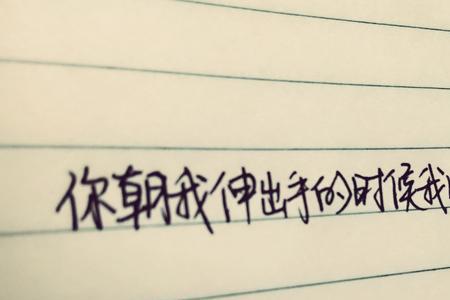 你朝我伸出手的时候我